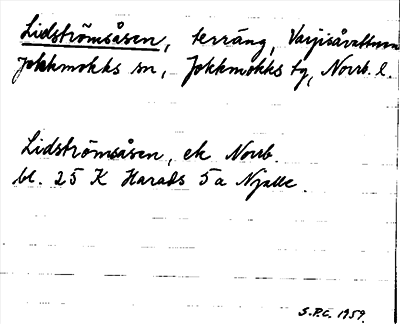 Lidströmsåsen, terräng, Varjisåvattnen
Jokkmokks sn, Jokkmokks tg, Norrb. l.
Lidströmsåsen, ek Norrb.
bl. 25 K Harads 5a Njalle.
S.P.G. 1959.